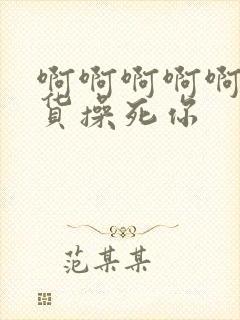 啊啊啊啊啊
货操死你
范某某